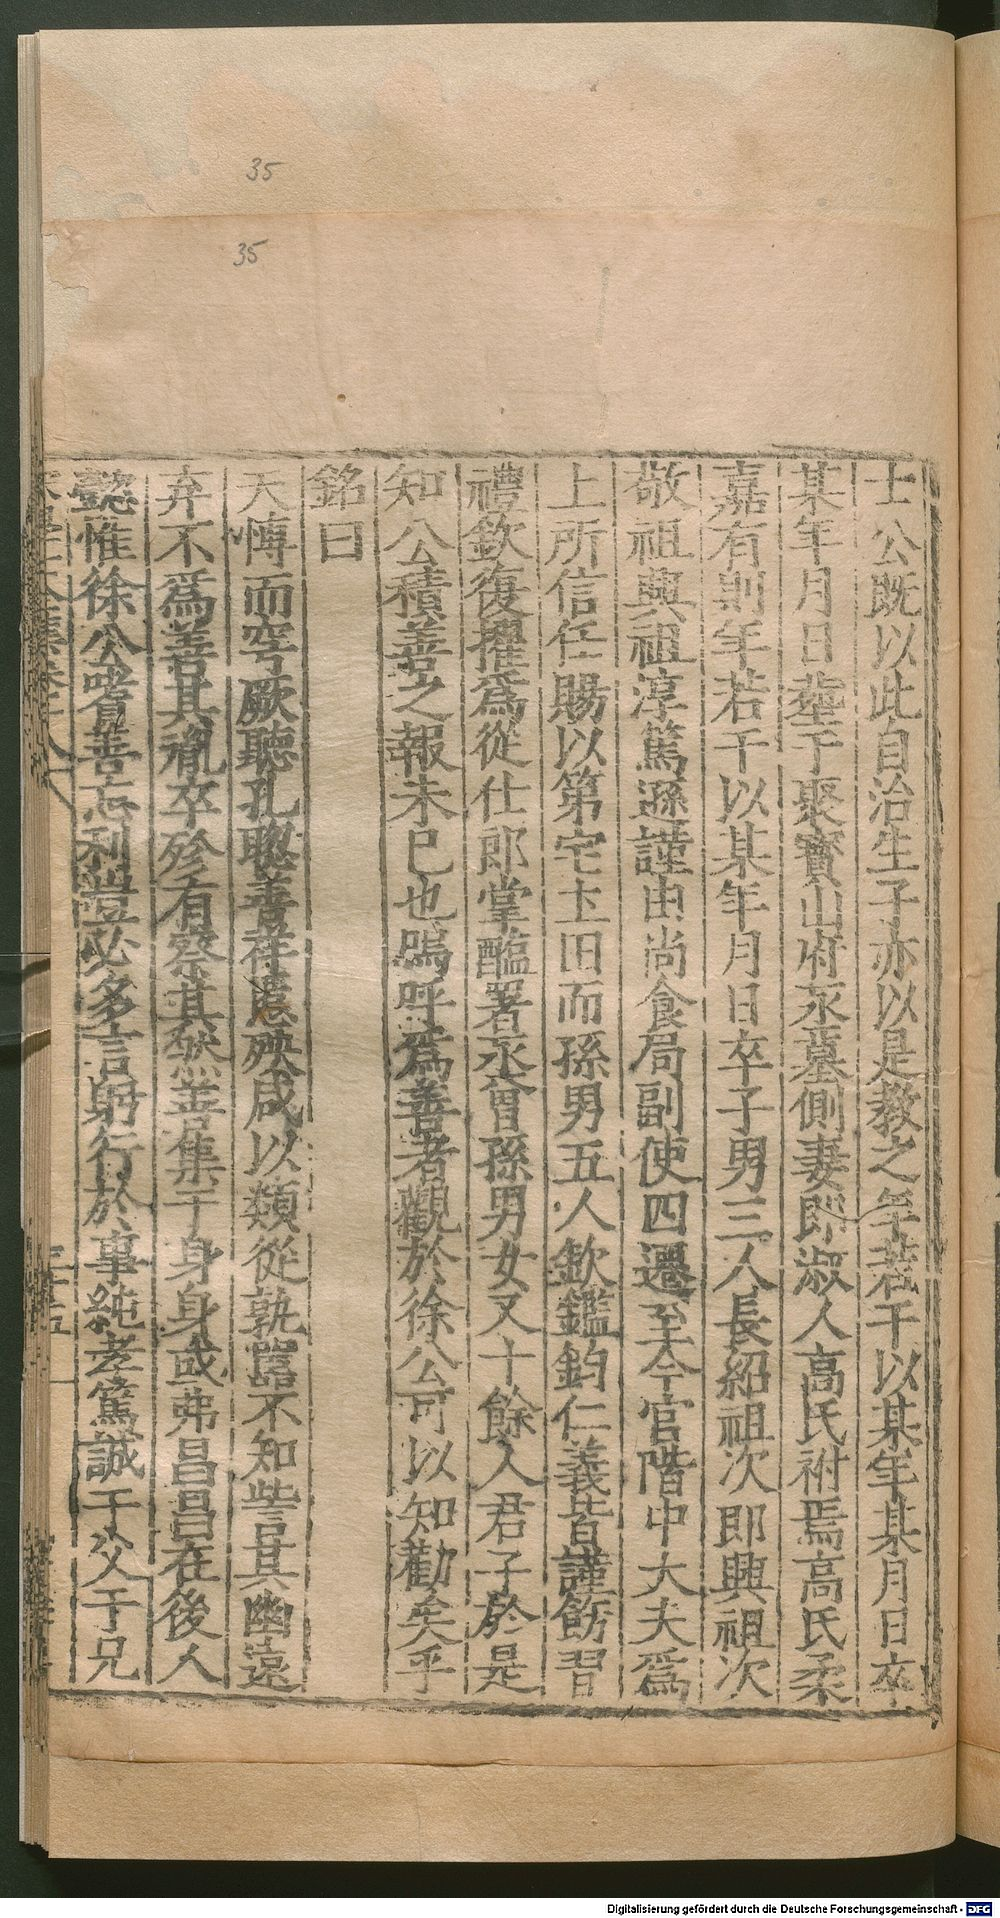 35
35
士公既以此自治生子亦以是教之年若干以某年某月日卒
某年月日塟于聚寶山府丞墓側妻郎淑人高氏祔焉高氏柔
嘉有則年若干以某年月日卒子男三人長紹祖次即興祖次
敬祖興祖淳篤遜謹由尚食局副使四遷至今官階中大夫爲
上所信任賜以第宅土田而孫男五人欽鑑鈞仁義皆謹飭習
禮欽復擢爲從仕郎掌醢署丞曾孫男女又十餘人君子於是
知公積善之報未已也嗚呼爲善者觀於徐公可以知勸矣乎
銘曰
天慱而穹厥聽孔聰善祥慝殃咸以類從孰嚚不知訾其幽遠
弃不爲善其禍卒殄有察其然善集于身身或弗昌昌在後人
懿惟徐公嗜善忘利豈必多言躬行於事純孝篤誠于父于兄
三十五
Digitalisierung gefördert durch die Deutsche Forschungsgemeinschaft - DFG